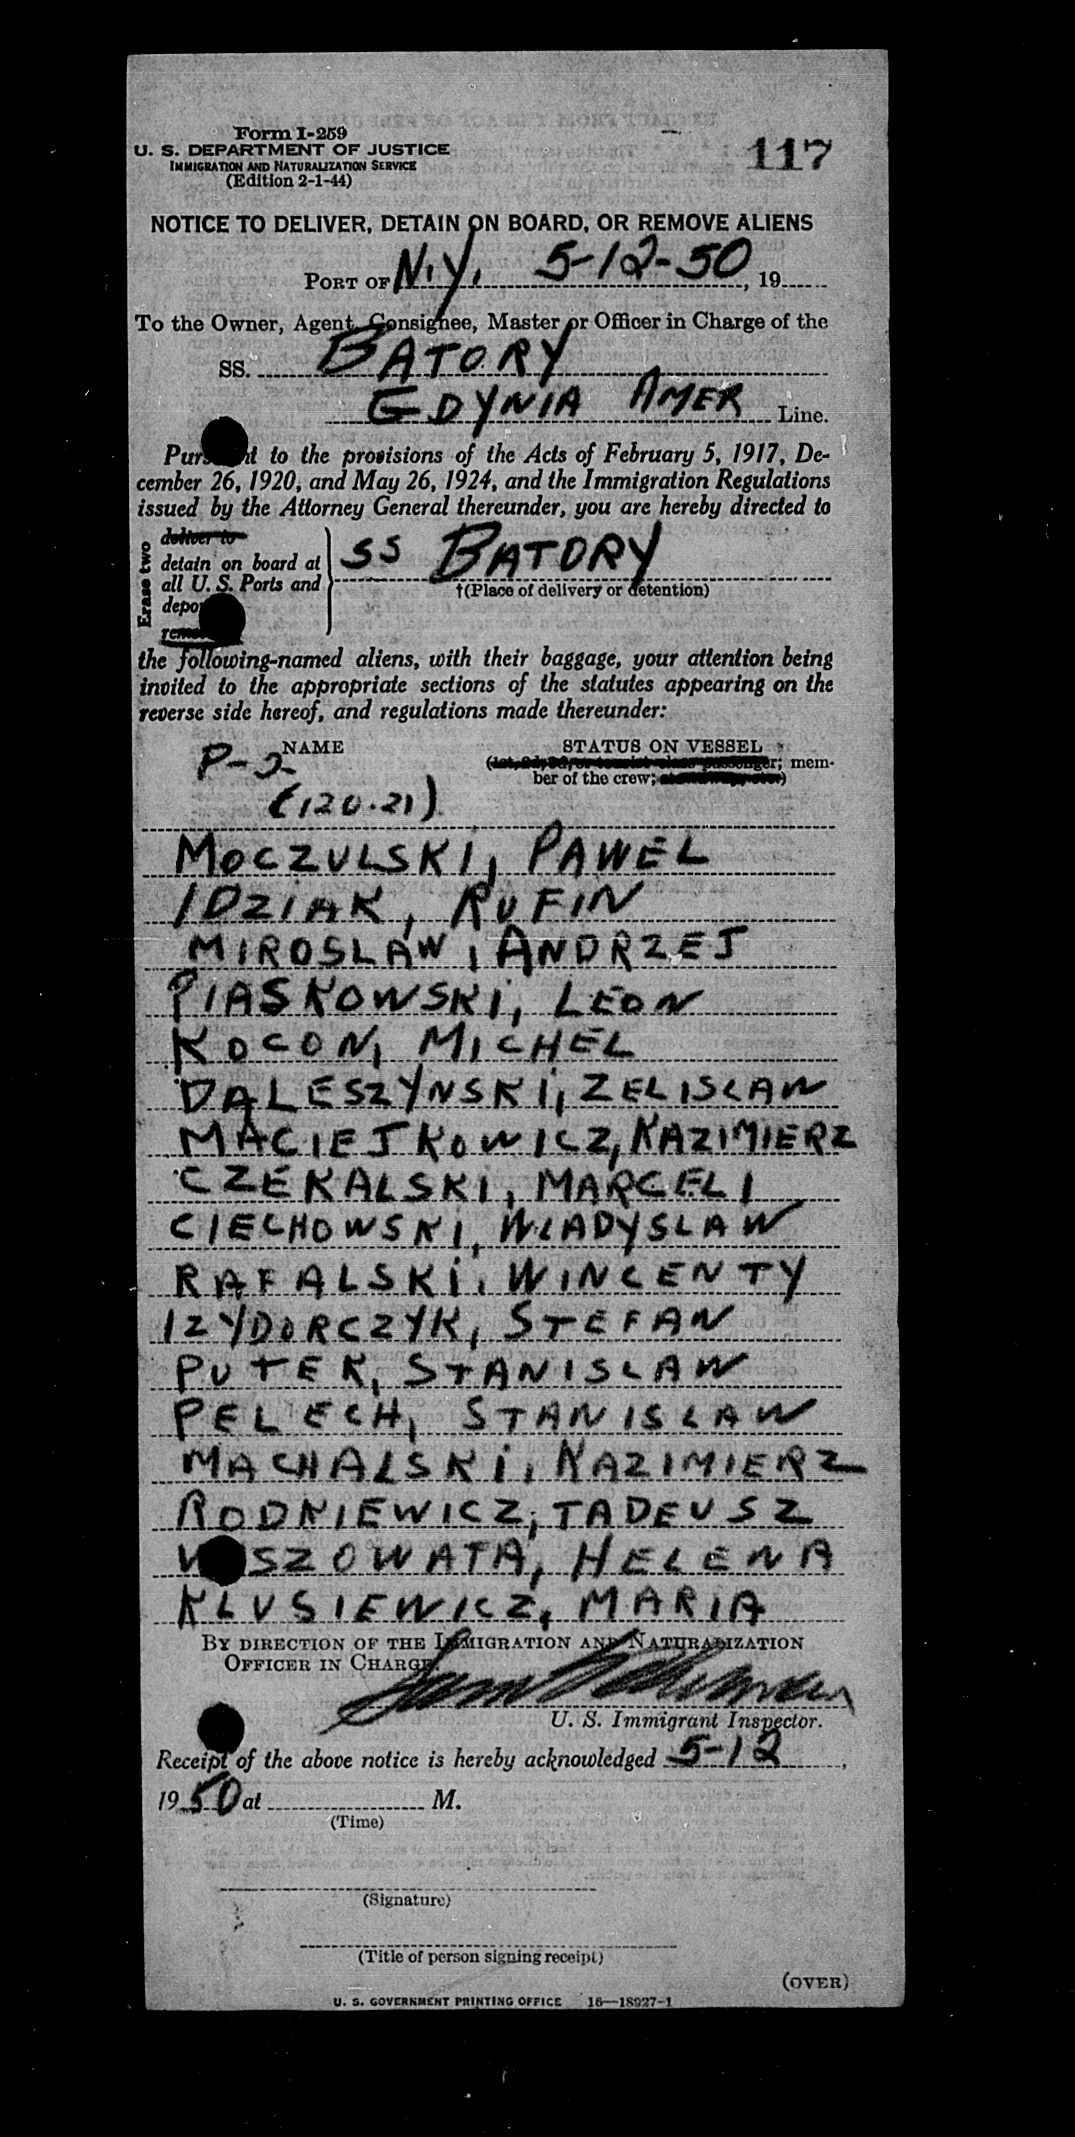 Form I-259
U. S. DEPARTMENT OF JUSTICE
IMMIGRATION AND NATURALIZATION SERVICE
(Edition 2-1-44)
117
NOTICE TO DELIVER, DETAIN ON BOARD, OR REMOVE ALIENS
PORT OF N.Y. 5-12-50, 19
To the Owner, Agent, Consignee, Master or Officer in Charge of the
SS. BATORY
GDYNIA AMER Line.
to the provisions of the Acts of February 5, 1917, De-
cember 26, 1920, and May 26, 1924, and the Immigration Regulations
issued by the Attorney General thereunder, you are hereby directed to
Erase two
deliver to
detain on board at
all U. S. Ports and
SS BATORY
†(Place of delivery or detention)
the following-named aliens, with their baggage, your attention being
invited to the appropriate sections of the statutes appearing on the
reverse side hereof, and regulations made thereunder:
NAME
STATUS ON VESSEL
mem-
ber of the crew;
P-2
(120.21)
MOCZULSKI, PAWEL
IDZIAK, RUFIN
MIROSLAW, ANDRZEJ
PIASKOWSKI, LEON
KOCON, MICHEL
DALESZYNSKI, ZELISLAW
MACIEJKOWICZ, KAZIMIERZ
CZEKALSKI, MARCELI
CIECHOWSKI, WLADYSLAW
RAFALSKI, WINCENTY
IZYDORCZYK, STEFAN
PUTEK, STANISLAW
PELECH, STANISLAW
MACHALSKI, KAZIMIERZ
RODKIEWICZ, TADEUSZ
HELENA
KLUSIEWICZ, MARIA
BY DIRECTION OF THE IMMIGRATION AND NATURALIZATION
OFFICER IN CHARGE.
U. S. Immigrant Inspector.
Receipt of the above notice is hereby acknowledged 5-12,
1950 at M.
(Time)
(Signature)
(Title of person signing receipt)
(OVER)
U. S. GOVERNMENT PRINTING OFFICE 16—18927-1